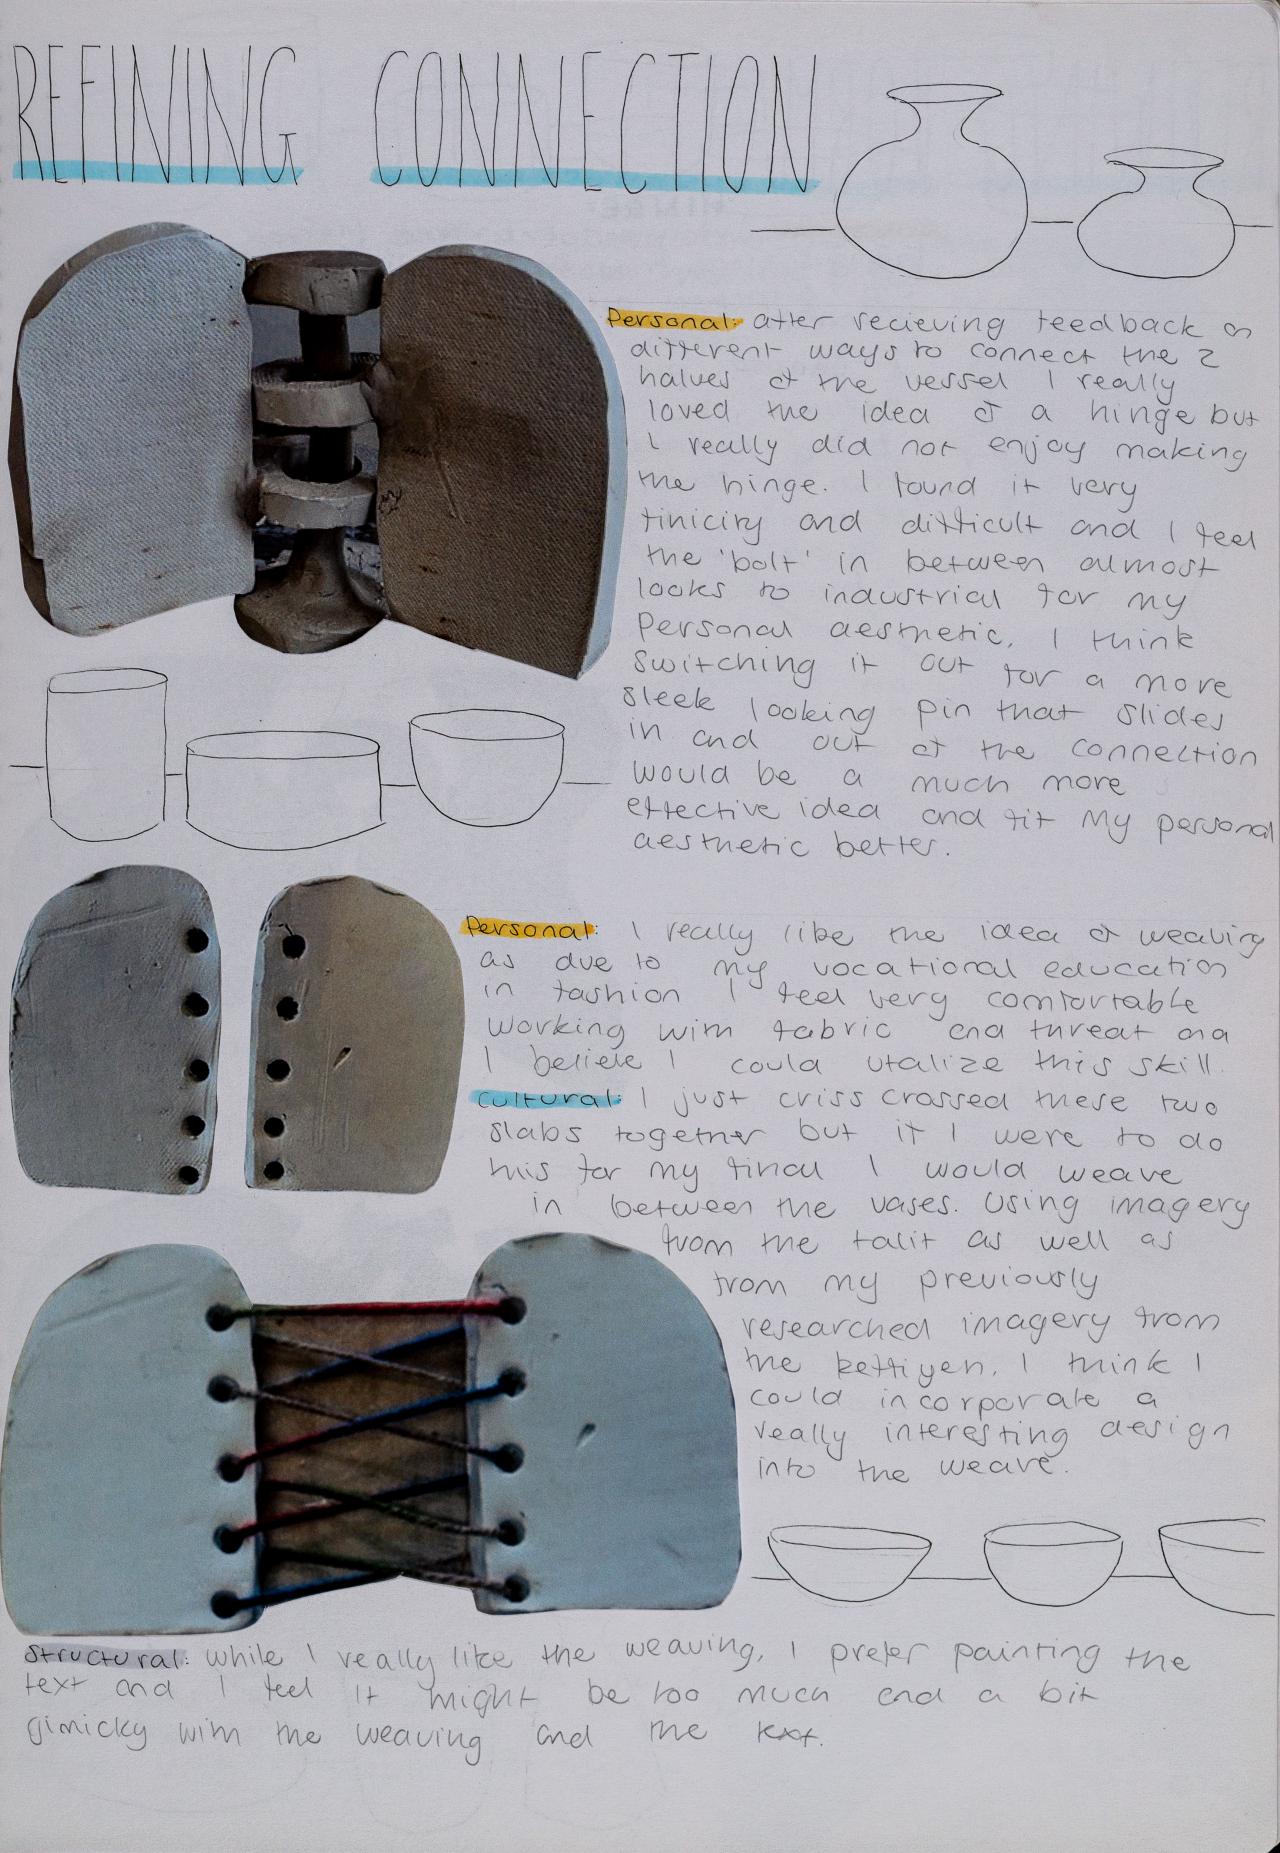 REFINING CONNECTION
Personal: after recieving feedback on
different ways to connect the 2
halves of the vessel I really
loved the idea of a hinge but
I really did not enjoy making
the hinge. I found it very
finicity and difficult and I feel
the 'bolt' in between almost
looks to industrial for my
Personal aesthetic. I think
switching it out for a more
sleek looking pin that slides
in and out of the connection
would be a much more
effective idea and fit my personal
aesthetic better.
Personal: I really like the idea of weaving
as due to my vocational education
in fashion I feel very comfortable
working with fabric and threat and
I believe I could utalize this skill.
Cultural: I just criss crossed these two
slabs together but if I were to do
this for my final I would weave
in between the vases. Using imagery
from the talit as well as
from my previously
researched imagery from
the keffiyeh. I think I
could incorporate a
really interesting design
into the weave.
Structural: while I really like the weaving, I prefer painting the
text and I feel it might be too much and a bit
gimicky with the weaving and the text.